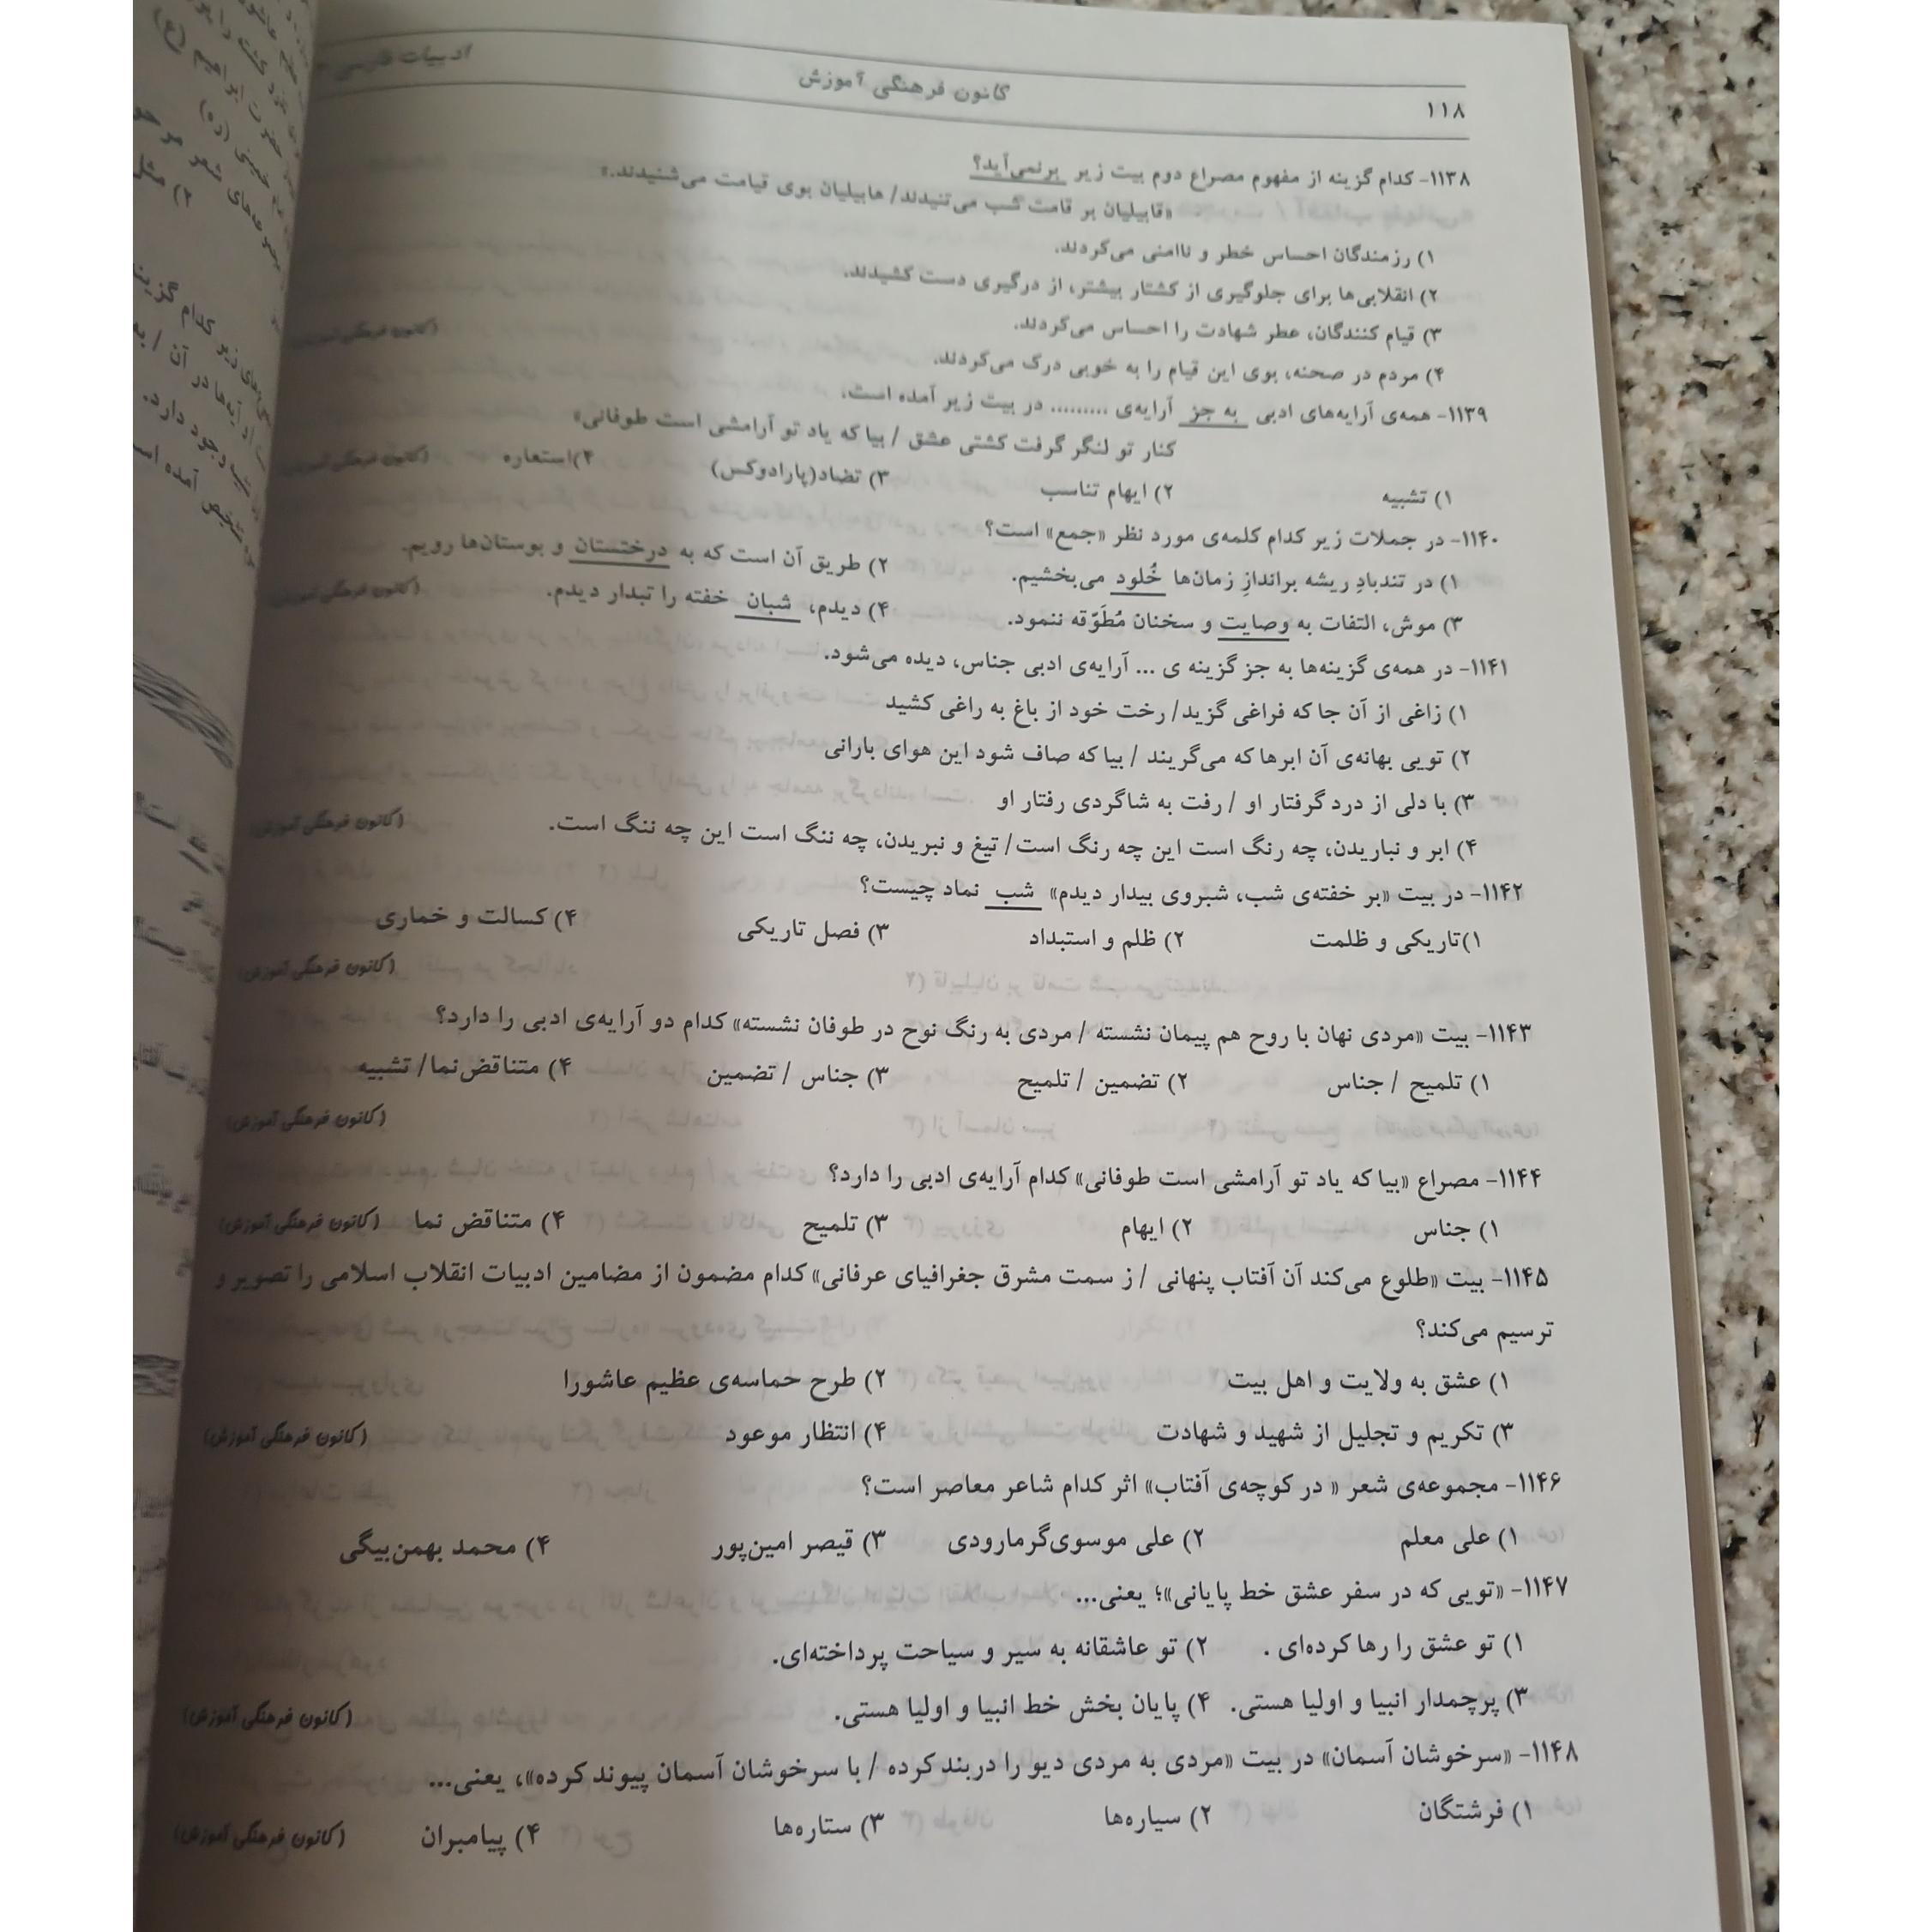 ادبیات فارسی
کانون فرهنگی آموزش
۱۱۸
۱۱۳۸- کدام گزینه از مفهوم مصراع دوم بیت زیر برنمی‌آید؟
«قابیلیان بر قامت شب می‌تنیدند/ هابیلیان بوی قیامت می‌شنیدند.»
۱) رزمندگان احساس خطر و ناامنی می‌کردند.
۲) انقلابی‌ها برای جلوگیری از کشتار بیشتر، از درگیری دست کشیدند.
۳) قیام کنندگان، عطر شهادت را احساس می‌کردند.
۴) مردم در صحنه، بوی این قیام را به خوبی درک می‌کردند. (کانون فرهنگی آموزش)
۱۱۳۹- همه‌ی آرایه‌های ادبی به جز آرایه‌ی ......... در بیت زیر آمده است.
کنار تو لنگر گرفت کشتی عشق / بیا که یاد تو آرامشی است طوفانی»
۱) تشبیه ۲) ایهام تناسب ۳) تضاد(پارادوکس) ۴)استعاره (کانون فرهنگی آموزش)
۱۱۴۰- در جملات زیر کدام کلمه‌ی مورد نظر «جمع» است؟
۱) در تندبادِ ریشه براندازِ زمان‌ها خُلود می‌بخشیم. ۲) طریق آن است که به درختستان و بوستان‌ها رویم.
۳) موش، التفات به وصایت و سخنان مُطَوّقه ننمود. ۴) دیدم، شبان خفته را تبدار دیدم. (کانون فرهنگی آموزش)
۱۱۴۱- در همه‌ی گزینه‌ها به جز گزینه ی ... آرایه‌ی ادبی جناس، دیده می‌شود.
۱) زاغی از آن جا که فراغی گزید/ رخت خود از باغ به راغی کشید
۲) تویی بهانه‌ی آن ابرها که می‌گریند / بیا که صاف شود این هوای بارانی
۳) با دلی از درد گرفتار او / رفت به شاگردی رفتار او
۴) ابر و نباریدن، چه رنگ است این چه رنگ است/ تیغ و نبریدن، چه ننگ است این چه ننگ است. (کانون فرهنگی آموزش)
۱۱۴۲- در بیت «بر خفته‌ی شب، شبروی بیدار دیدم» شب نماد چیست؟
۱)تاریکی و ظلمت ۲) ظلم و استبداد ۳) فصل تاریکی ۴) کسالت و خماری
(کانون فرهنگی آموزش)
۱۱۴۳- بیت «مردی نهان با روح هم پیمان نشسته / مردی به رنگ نوح در طوفان نشسته» کدام دو آرایه‌ی ادبی را دارد؟
۱) تلمیح / جناس ۲) تضمین / تلمیح ۳) جناس / تضمین ۴) متناقض‌نما/ تشبیه
(کانون فرهنگی آموزش)
۱۱۴۴- مصراع «بیا که یاد تو آرامشی است طوفانی» کدام آرایه‌ی ادبی را دارد؟
۱) جناس ۲) ایهام ۳) تلمیح ۴) متناقض نما (کانون فرهنگی آموزش)
۱۱۴۵- بیت «طلوع می‌کند آن آفتاب پنهانی / ز سمت مشرق جغرافیای عرفانی» کدام مضمون از مضامین ادبیات انقلاب اسلامی را تصویر و
ترسیم می‌کند؟
۱) عشق به ولایت و اهل بیت ۲) طرح حماسه‌ی عظیم عاشورا
۳) تکریم و تجلیل از شهید و شهادت ۴) انتظار موعود (کانون فرهنگی آموزش)
۱۱۴۶- مجموعه‌ی شعر « در کوچه‌ی آفتاب» اثر کدام شاعر معاصر است؟
۱) علی معلم ۲) علی موسوی‌گرمارودی ۳) قیصر امین‌پور ۴) محمد بهمن‌بیگی
۱۱۴۷- «تویی که در سفر عشق خط پایانی»؛ یعنی...
۱) تو عشق را رها کرده‌ای . ۲) تو عاشقانه به سیر و سیاحت پرداخته‌ای.
۳) پرچمدار انبیا و اولیا هستی. ۴) پایان بخش خط انبیا و اولیا هستی. (کانون فرهنگی آموزش)
۱۱۴۸- «سرخوشان آسمان» در بیت «مردی به مردی دیو را دربند کرده / با سرخوشان آسمان پیوند کرده»، یعنی...
۱) فرشتگان ۲) سیاره‌ها ۳) ستاره‌ها ۴) پیامبران (کانون فرهنگی آموزش)